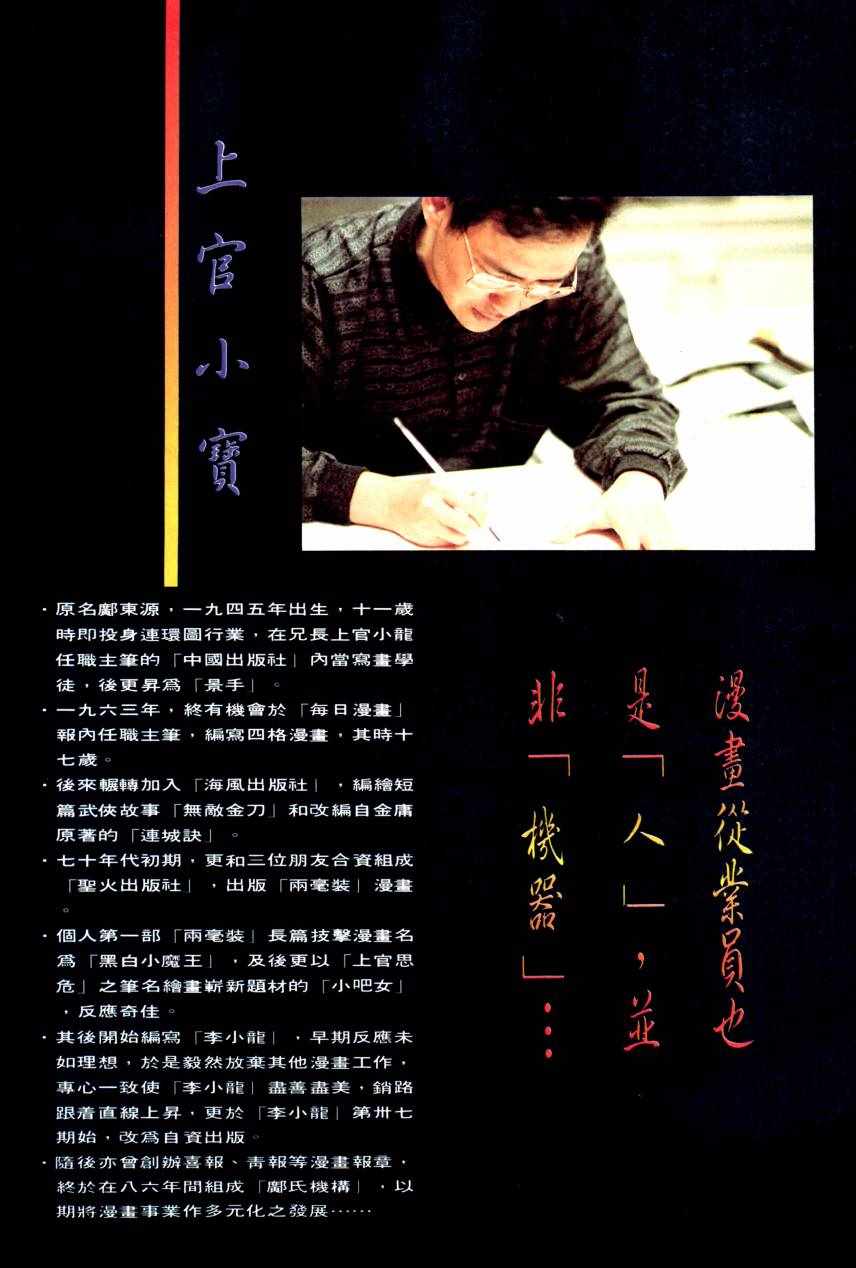 上官小寶
・原名鄺東源，一九四五年出生，十一歲
時即投身連環圖行業，在兄長上官小龍
任職主筆的「中國出版社」內當寫畫學
徒，後更昇為「景手」。
・一九六三年，終有機會於「每日漫畫」
報內任職主筆，編寫四格漫畫，其時十
七歲。
・後來輾轉加入「海風出版社」，編繪短
篇武俠故事「無敵金刀」和改編自金庸
原著的「連城訣」。
・七十年代初期，更和三位朋友合資組成
「聖火出版社」，出版「兩毫裝」漫畫
。
・個人第一部「兩毫裝」長篇技擊漫畫名
為「黑白小魔王」，及後更以「上官思
危」之筆名繪畫嶄新題材的「小吧女」
，反應奇佳。
・其後開始編寫「李小龍」，早期反應未
如理想，於是毅然放棄其他漫畫工作，
專心一致使「李小龍」盡善盡美，銷路
跟着直線上昇，更於「李小龍」第卅七
期始，改為自資出版。
・隨後亦曾創辦喜報、青報等漫畫報章，
終於在八六年間組成「鄺氏機構」，以
期將漫畫事業作多元化之發展……
漫畫從業員也
是「人」，並
非「機器」…